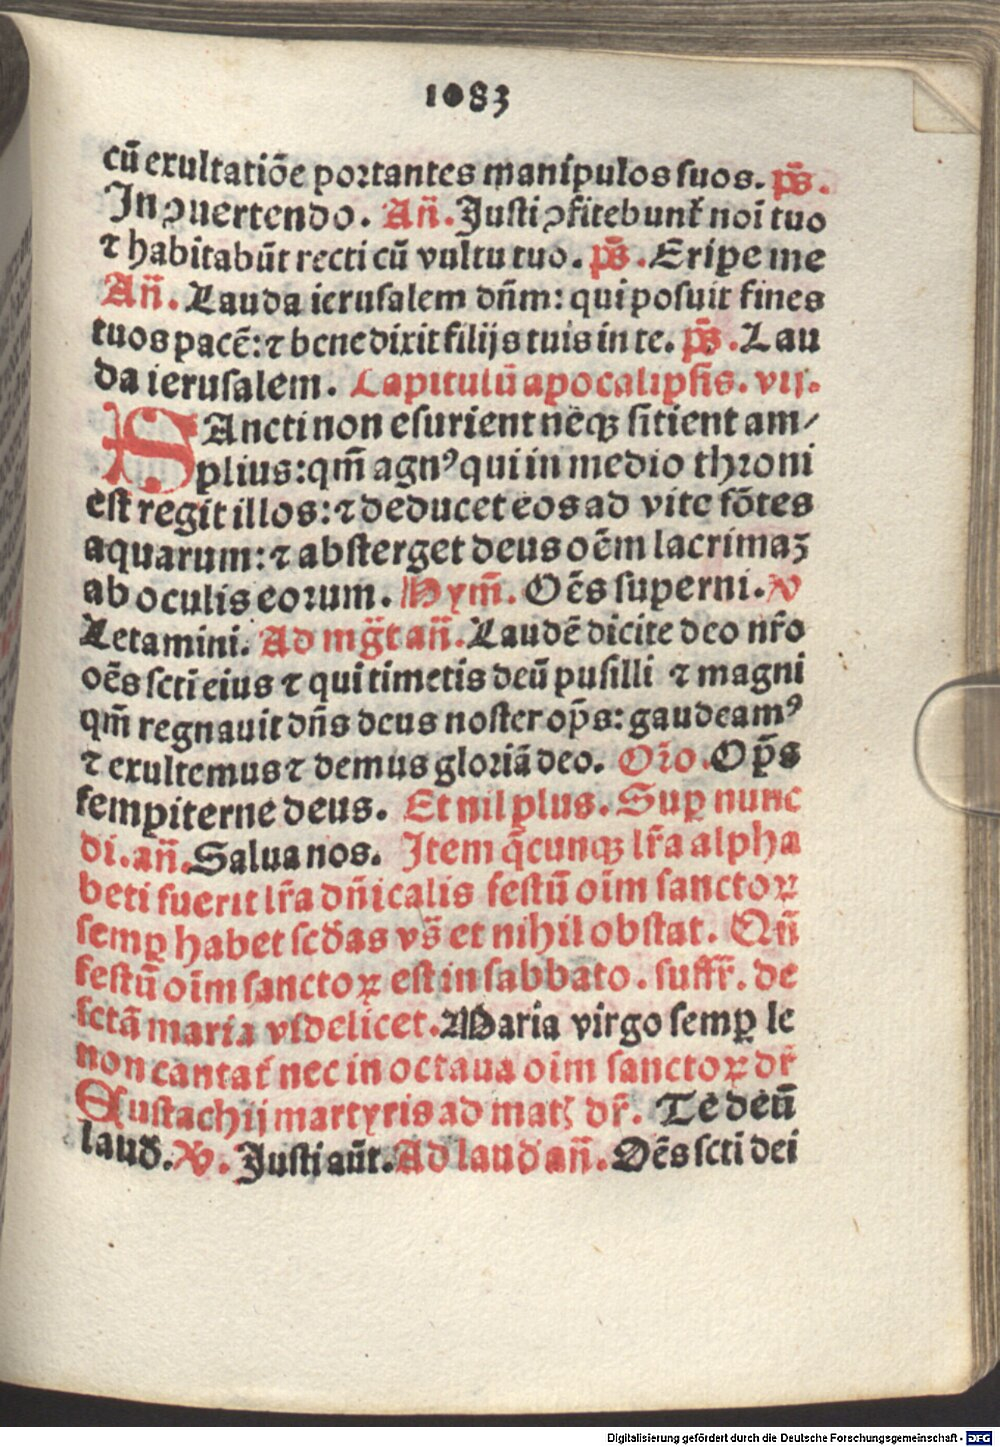 1083
cū exultatiōe portantes manipulos suos. ps̄.
In ꝯuertendo. Añ. Justi ꝯfitebunt̄ noī tuo
⁊ habitabūt recti cū vultu tuo. ps̄. Eripe me
Añ. Lauda ierusalem dñm: qui posuit fines
tuos pacē: ⁊ benedixit filijs tuis in te. ps̄. Lau
da ierusalem. Capitulū apocalipsis. vij.
SAncti non esurient neqꝫ sitient am⸗
plius: qm̄ agnꝰ qui in medio throni
est regit illos: ⁊ deducet eos ad vite fōtes
aquarum: ⁊ absterget deus oēm lacrimaꝫ
ab oculis eorum. Hym̄. Oēs superni. ℣
Letamini. Ad mḡt añ. Laudē dicite deo nr̄o
oēs scti eius ⁊ qui timetis deū pusilli ⁊ magni
qm̄ regnauit dñs deus noster op̄s: gaudeamꝰ
⁊ exultemus ⁊ demus gloriā deo. Or̄o. Op̄s
sempiterne deus. Et nil plus. Suꝑ nunc
di. añ. Salua nos. Item q̄cunqꝫ lr̄a alpha
beti fuerit lr̄a dñicalis festū oīm sanctoꝝ
semꝑ habet scd̄as vs̄ et nihil obstat. Qñ
festū oīm sanctoꝝ est in sabbato. suffr̄. de
sctā maria vſdelicet. Maria virgo semꝑ le
non cantat̄ nec in octaua oīm sanctoꝝ dr̄
Eustachij martyris ad matꝭ dr̄. Te deū
laud̄. ℣. Justi aūt. Ad laud̄ añ. Oēs scti dei
Digitalisierung gefördert durch die Deutsche Forschungsgemeinschaft - DFG